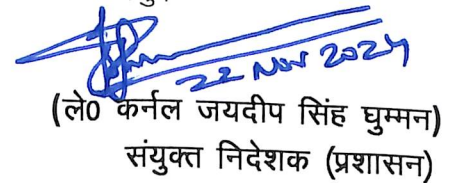 22 Nov 2024
(ले0 कर्नल जयदीप सिंह घुम्मन)
संयुक्त निदेशक (प्रशासन)